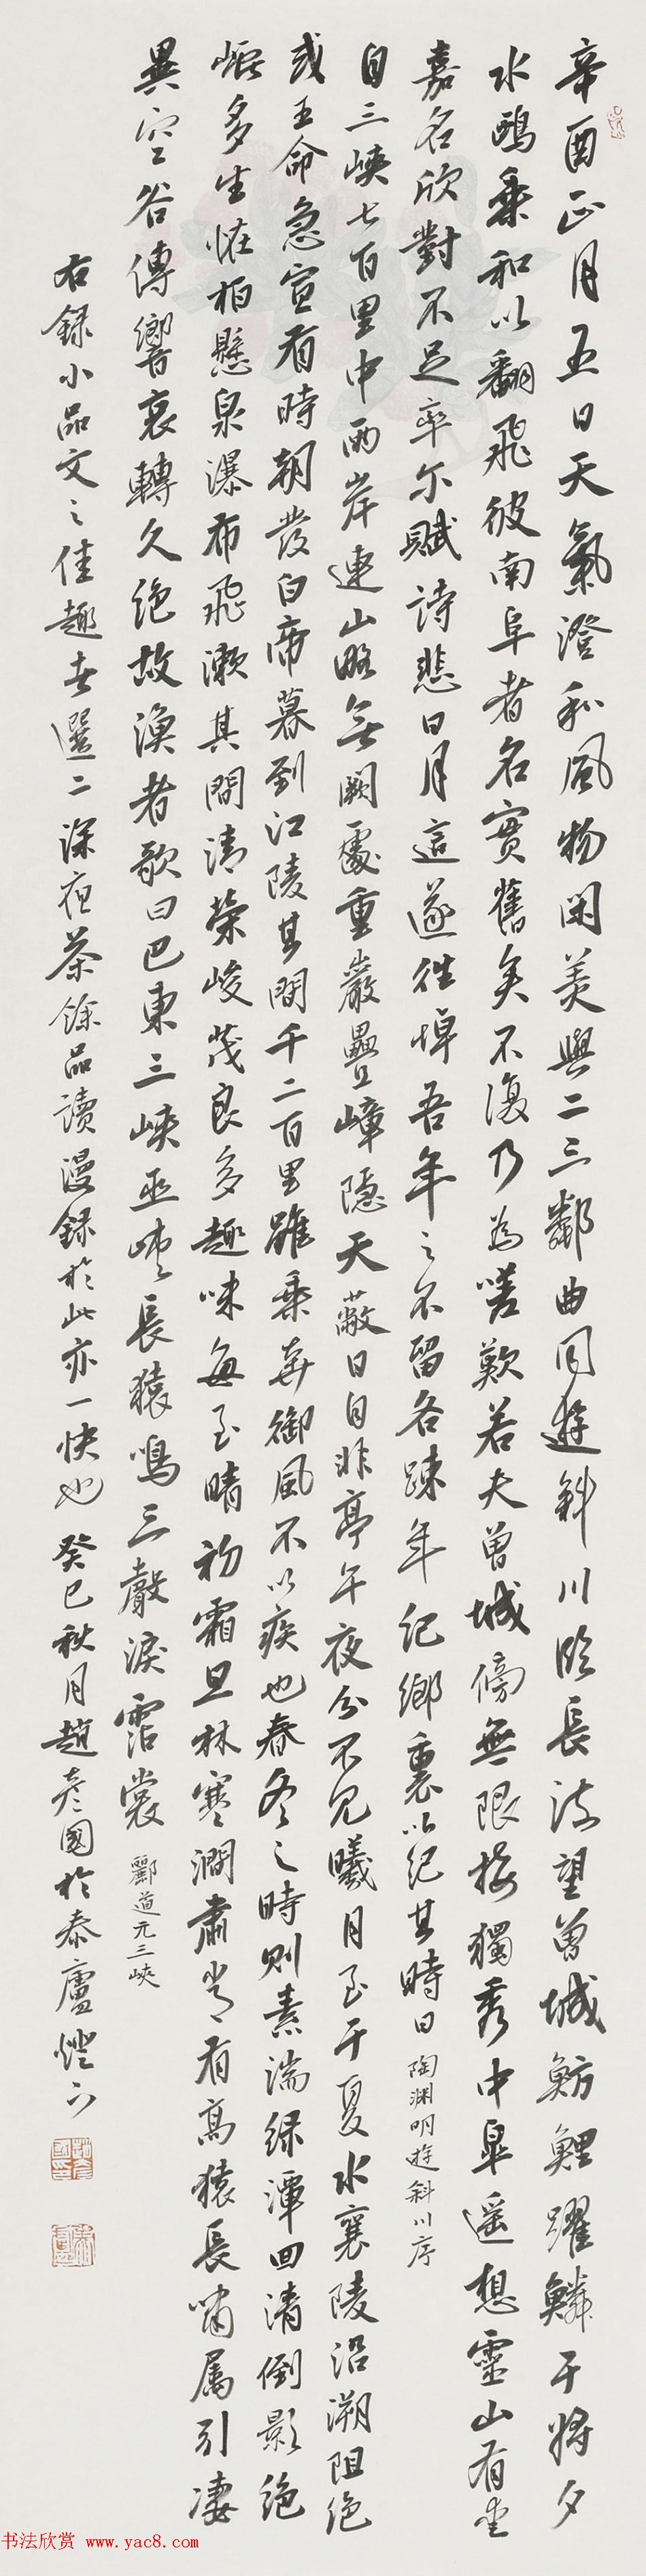 辛酉正月五日天氣澄和風物閑美與二三鄰曲同遊斜川臨長流望曾城魴鯉躍鱗于將夕
水鷗乘和以翻飛彼南阜者名實舊矣不復乃為嗟歎若夫曾城傍無限接獨秀中皋遥想靈山有愛
嘉名欣對不足率尔賦詩悲日月遂往悼吾年之不留各疎年紀鄉里以纪其時日 陶渊明遊斜川序
自三峽七百里中兩岸連山略無闕處重巖疊嶂隱天蔽日自非亭午夜分不见曦月至于夏水襄陵沿溯阻绝
或王命急宣有時朝發白帝暮到江陵其間千二百里雖乘奔御風不以疾也春冬之時則素湍绿潭回清倒影绝
巘多生怪柏懸泉瀑布飛漱其間清榮峻茂良多趣味每至晴初霜旦林寒澗肅常有高猿長嘯属引凄
異空谷傳響哀轉久绝故漁者歌曰巴東三峽巫峽長猿鳴三聲淚霑裳 酈道元三峽
右録小品文之佳趣者選二深夜茶餘品讀漫録於此亦一快也 癸巳秋月趙彦國於泰廬燈下
书法欣赏 www.yac8.com